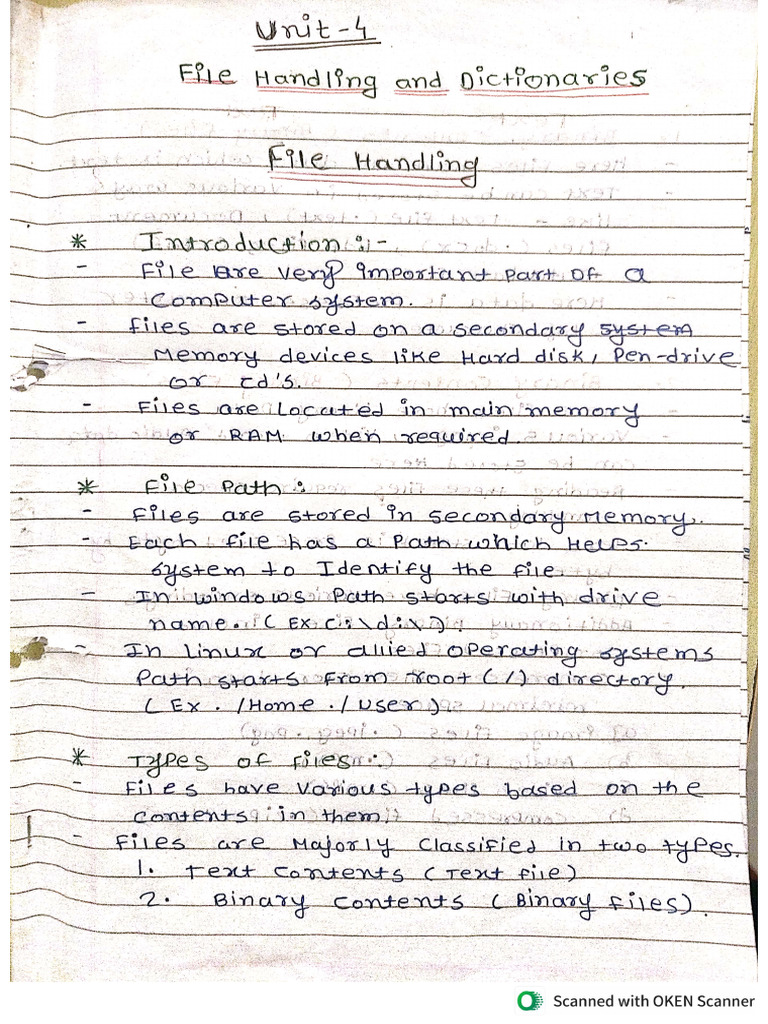 Unit-4
File Handling and Dictionaries
File Handling
* Introduction :-
- File are very important part of a
computer system.
- files are stored on a secondary system
Memory devices like Hard disk, Pen-drive
or cd's.
- Files are located in main memory
or RAM when required.
* File Path :
- Files are stored in secondary Memory.
- Each file has a path which Helps
system to Identify the file
- In windows Path starts with drive
name. (Ex c:\d:\).
- In linux or allied operating systems
Path starts from root (/) directory.
(Ex. /Home. /user)
* Types of files :
- Files have various types based on the
contents in them
- Files are Majorly classified in two types.
1. Text contents (Text file)
2. Binary contents (Binary files).
Scanned with OKEN Scanner